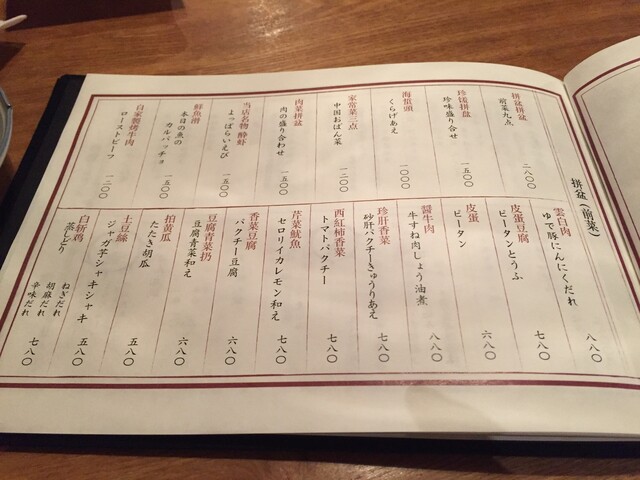 拼盆(前菜)
拼盆拼盆
前菜九点
二八〇〇
珍味盛り合せ
一五〇〇
海蜇頭
くらげあえ
一〇〇〇
家常菜三点
中国おばん菜
一二〇〇
肉菜拼盆
肉の盛り合わせ
一五〇〇
当店名物 酔虾
よっぱらいえび
一五〇〇
鮮魚滑
本日の魚の
カルパッチョ
一五〇〇
自家製烤牛肉
ローストビーフ
一二〇〇
雲白肉
ゆで豚にんにくだれ
八八〇
皮蛋豆腐
ピータンとうふ
七八〇
皮蛋
ピータン
六八〇
醤牛肉
牛すね肉しょう油煮
八八〇
珍肝香菜
砂肝パクチーきゅうりあえ
七八〇
西紅柿香菜
トマトパクチー
七八〇
芹菜魷魚
セロリイカレモン和え
七八〇
香菜豆腐
パクチー豆腐
六八〇
豆腐青菜扔
豆腐青菜和え
六八〇
拍黄瓜
たたき胡瓜
五八〇
土豆絲
ジャガ芋シャキシャキ
五八〇
白斩鸡
蒸しどり
ねぎだれ
胡麻だれ
辛味だれ
七八〇